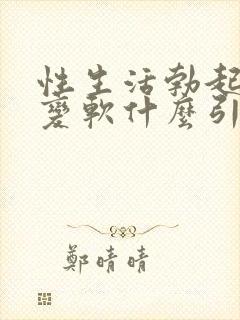 性生活勃起
變軟什麼引
鄭晴晴